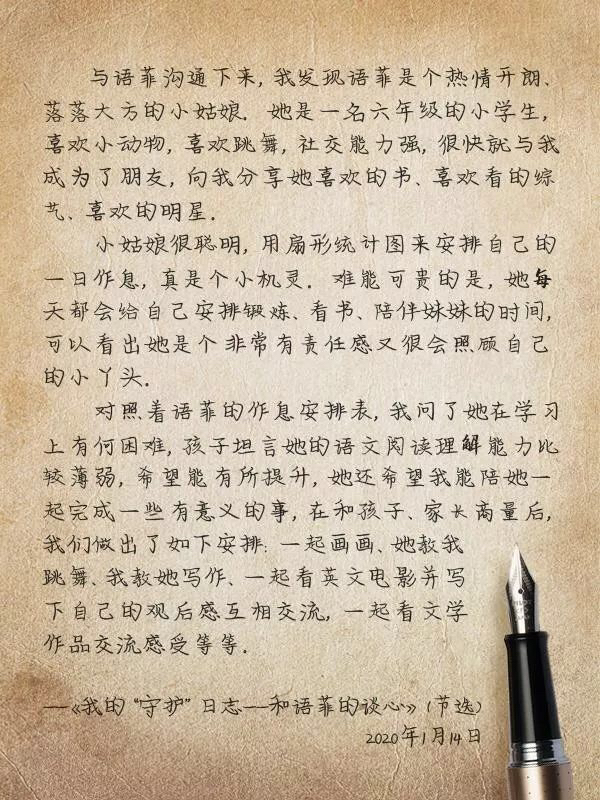 与语菲沟通下来,我发现语菲是个热情开朗、
落落大方的小姑娘. 她是一名六年级的小学生,
喜欢小动物,喜欢跳舞,社交能力强,很快就与我
成为了朋友,向我分享她喜欢的书、喜欢看的综
艺、喜欢的明星.
小姑娘很聪明,用扇形统计图来安排自己的
一日作息,真是个小机灵. 难能可贵的是,她每
天都会给自己安排锻炼、看书、陪伴妹妹的时间,
可以看出她是个非常有责任感又很会照顾自己
的小丫头.
对照着语菲的作息安排表,我问了她在学习
上有何困难,孩子坦言她的语文阅读理解能力比
较薄弱,希望能有所提升,她还希望我能陪她一
起完成一些有意义的事,在和孩子、家长商量后,
我们做出了如下安排:一起画画、她教我
跳舞、我教她写作、一起看英文电影并写
下自己的观后感互相交流,一起看文学
作品交流感受等等.
—《我的“守护”日志—和语菲的谈心》(节选)
2020年1月14日